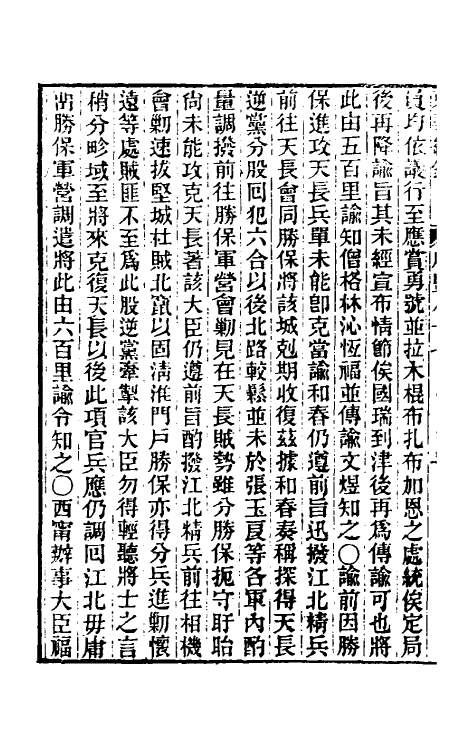 員均依議行至應賞勇號並拉木棍布扎布加恩之處統俟定局
後再降諭旨其未經宣布情節俟國瑞到津後再爲傳諭可也將
此由五百里諭知僧格林沁恆福並傳諭文煜知之〇諭前因勝
保進攻天長兵單未能卽克當諭和春仍遵前旨迅撥江北精兵
前往天長會同勝保將該城剋期收復茲據和春奏稱探得天長
逆黨分股回犯六合以後北路較鬆並未於張玉良等各軍內酌
量調撥前往勝保軍營會勦現在天長賊勢雖分勝保扼守盱眙
尚未能攻克天長著該大臣仍遵前旨酌撥江北精兵前往相機
會勦速拔堅城杜賊北竄以固淸淮門戶勝保亦得分兵進勦懷
遠等處賊匪不至爲此股逆黨牽掣該大臣勿得輕聽將士之言
稍分畛域至將來克復天長以後此項官兵應仍調回江北毋庸
留勝保軍營調遣將此由六百里諭令知之〇西甯辦事大臣福